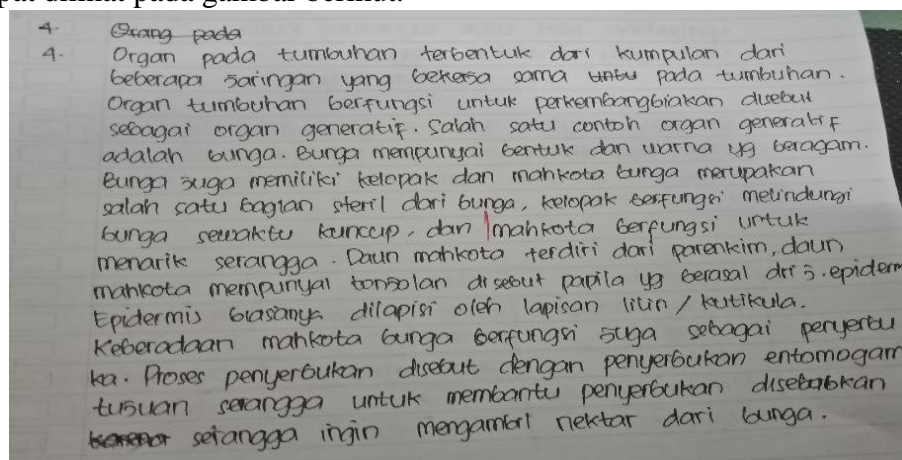 4. Orang pada
4. Organ pada tumbuhan terbentuk dari kumpulan dari
beberapa jaringan yang bekerja sama untu pada tumbuhan.
Organ tumbuhan berfungsi untuk perkembangbiakan disebut
sebagai organ generatif. Salah satu contoh organ generatif
adalah bunga. Bunga mempunyai bentuk dan warna yg beragam.
Bunga juga memiliki kelopak dan mahkota bunga merupakan
salah satu bagian steril dari bunga, kelopak berfungsi melindungi
bunga sewaktu kunccup, dan mahkota berfungsi untuk
menarik serangga. Daun mahkota terdiri dari parenkim, daun
mahkota mempunyai tonjolan disebut papila yg berasal dri j. epiderm
Epidermis biasanya dilapisi oleh lapisan lilin / kutikula.
Keberadaan mahkota bunga berfungsi juga sebagai penyerbu
ka. Proses penyerbukan disebut dengan penyerbukan entomogam
tujuan serangga untuk membantu penyerbukan disebabkan
serangga ingin mengambil nektar dari bunga.